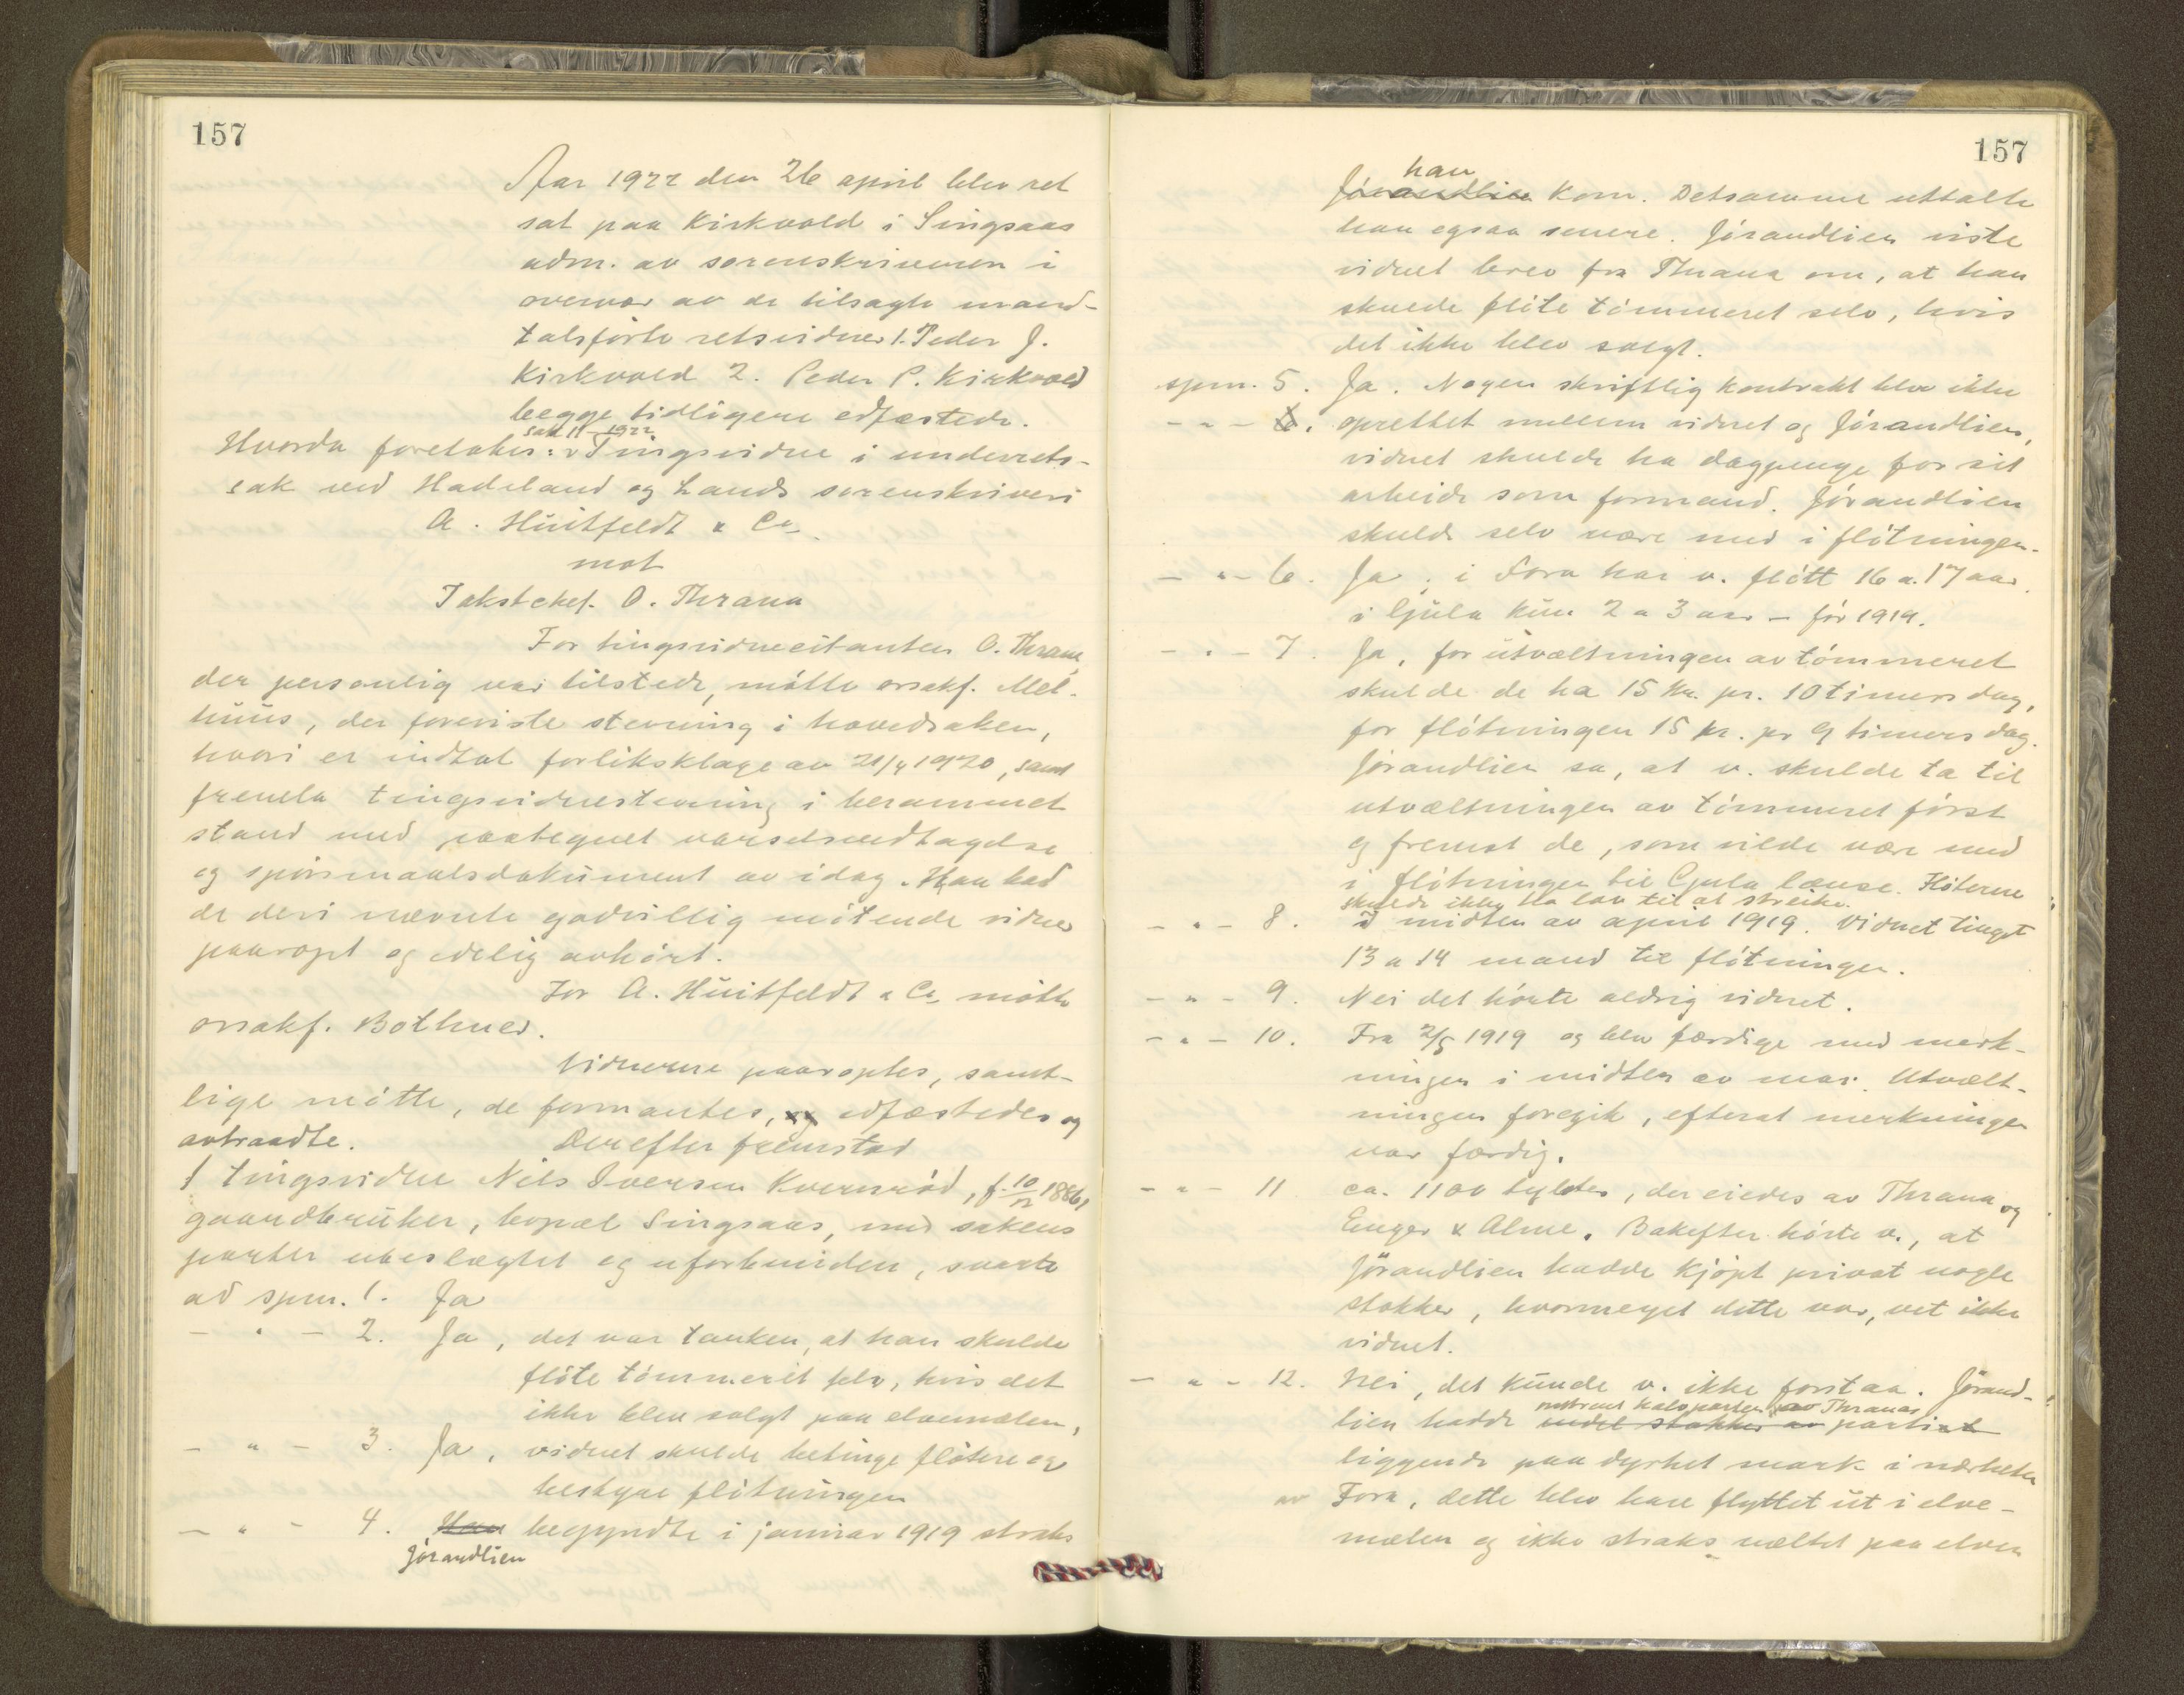 157
Aar 1922 den 26 april blev ret
sat paa Kirkvold i Singsaas
adm. av sorenskriveren i
overvær av de tilsagte mand-
talsførte retsvidner 1. Peder J.
Kirkvold 2. Peder P. Kirkvold
begge tidligere edfæstede.
sak 11 1922
Hvorda foretokes: Tingsvidne i underrets-
sak ved Hadeland og Lands sorenskriveri
A. Huitfeldt & Co.
mot
Takstchef. O. Thrana
For tingsvidnecitanten O. Thrane
der personlig var tilstede, møtte orsakf. Mel-
huus, der foreviste stevning i hovedsaken,
hvori er indtat forliksklage av 21/4 1920, samt
fremla tingsvidnestevning i berammet
stand med paategnet varselsvedtagelse
og spørsmaalsdokument av idag. Han bad
de deri nævnte godvillig møtende vidner
paaropt og edelig avhørt.
For A. Huitfeldt & Co. møtte
orsakf. Bothner.
Vidnerne paaroptes, samt-
lige møtte, de formantes, og edfæstedes og
avtraadte. Derefter fremstod
1 tingsvidne Nils Iversen Kvernrød, f. 10/12 1886,
gaardbruker, bopæl Singsaas, med sakens
parter ubeslægtet og uforbunden, svarte
ad spm. 1. Ja
- " - 2. Ja, det var tanken, at han skulde
fløte tømmeret selv, hvis det
ikke blev solgt paa elvemælen,
- " - 3. Ja, vidnet skulde betinge fløtere og
bestyre fløtningen
- " - 4. Han begyndte i januar 1919 straks
Jórandlien
157
han
Jórandlien kom. Detsamme uttalte
han ogsaa senere. Jórandlien viste
vidnet brev fra Thrana om, at han
skulde fløte tømmeret selv, hvis
det ikke blev solgt.
spm. 5. Ja. Nogen skriftlig kontrakt blev ikke
- " - 6. oprettet mellem vidnet og Jórandlien,
vidnet skulde ha dagpenge for sit
arbeide som formand. Jórandlien
skulde selv være med i fløtningen.
- " - 6. Ja, i Fora har v. fløtt 16 a 17 aar.
i Gula kun 2 a 3 aar - før 1919.
- " - 7. Ja, for utvæltningen av tømmeret
skulde de ha 15 kr. pr. 10 timers dag,
for fløtningen 15 kr. pr 9 timers dag.
Jórandlien sa, at v. skulde ta til
utvæltningen av tømmeret først
og fremst de, som vilde være med
i fløtningen til Gula lænse. Fløterne
skulde ikke ha lov til at streike.
- " - 8. I midten av april 1919. Vidnet tinget
13 a 14 mand til fløtningen.
- " - 9. Nei det hørte aldrig vidnet.
- " - 10. Fra 2/5 1919 og blev færdige med merk-
ningen i midten av mai. Utvælt-
ningen foregik, efterat merkningen
var færdig.
- " - 11 ca. 1100 tylfter, der eiedes av Thrana og
Enger & Alme. Bakefter hørte v., at
Jórandlien hadde kjøpt privat nogle
stokker, hvormeget dette var, vet ikke
vidnet.
- " - 12. Nei, det kunde v. ikke forstaa. Jórand-
halvparten av Thranas
lien hadde endel stokker av partiet
liggende paa dyrket mark i nærheten
av Fora, dette blev bare flyttet ut i elve-
mælen og ikke straks væltet paa elven